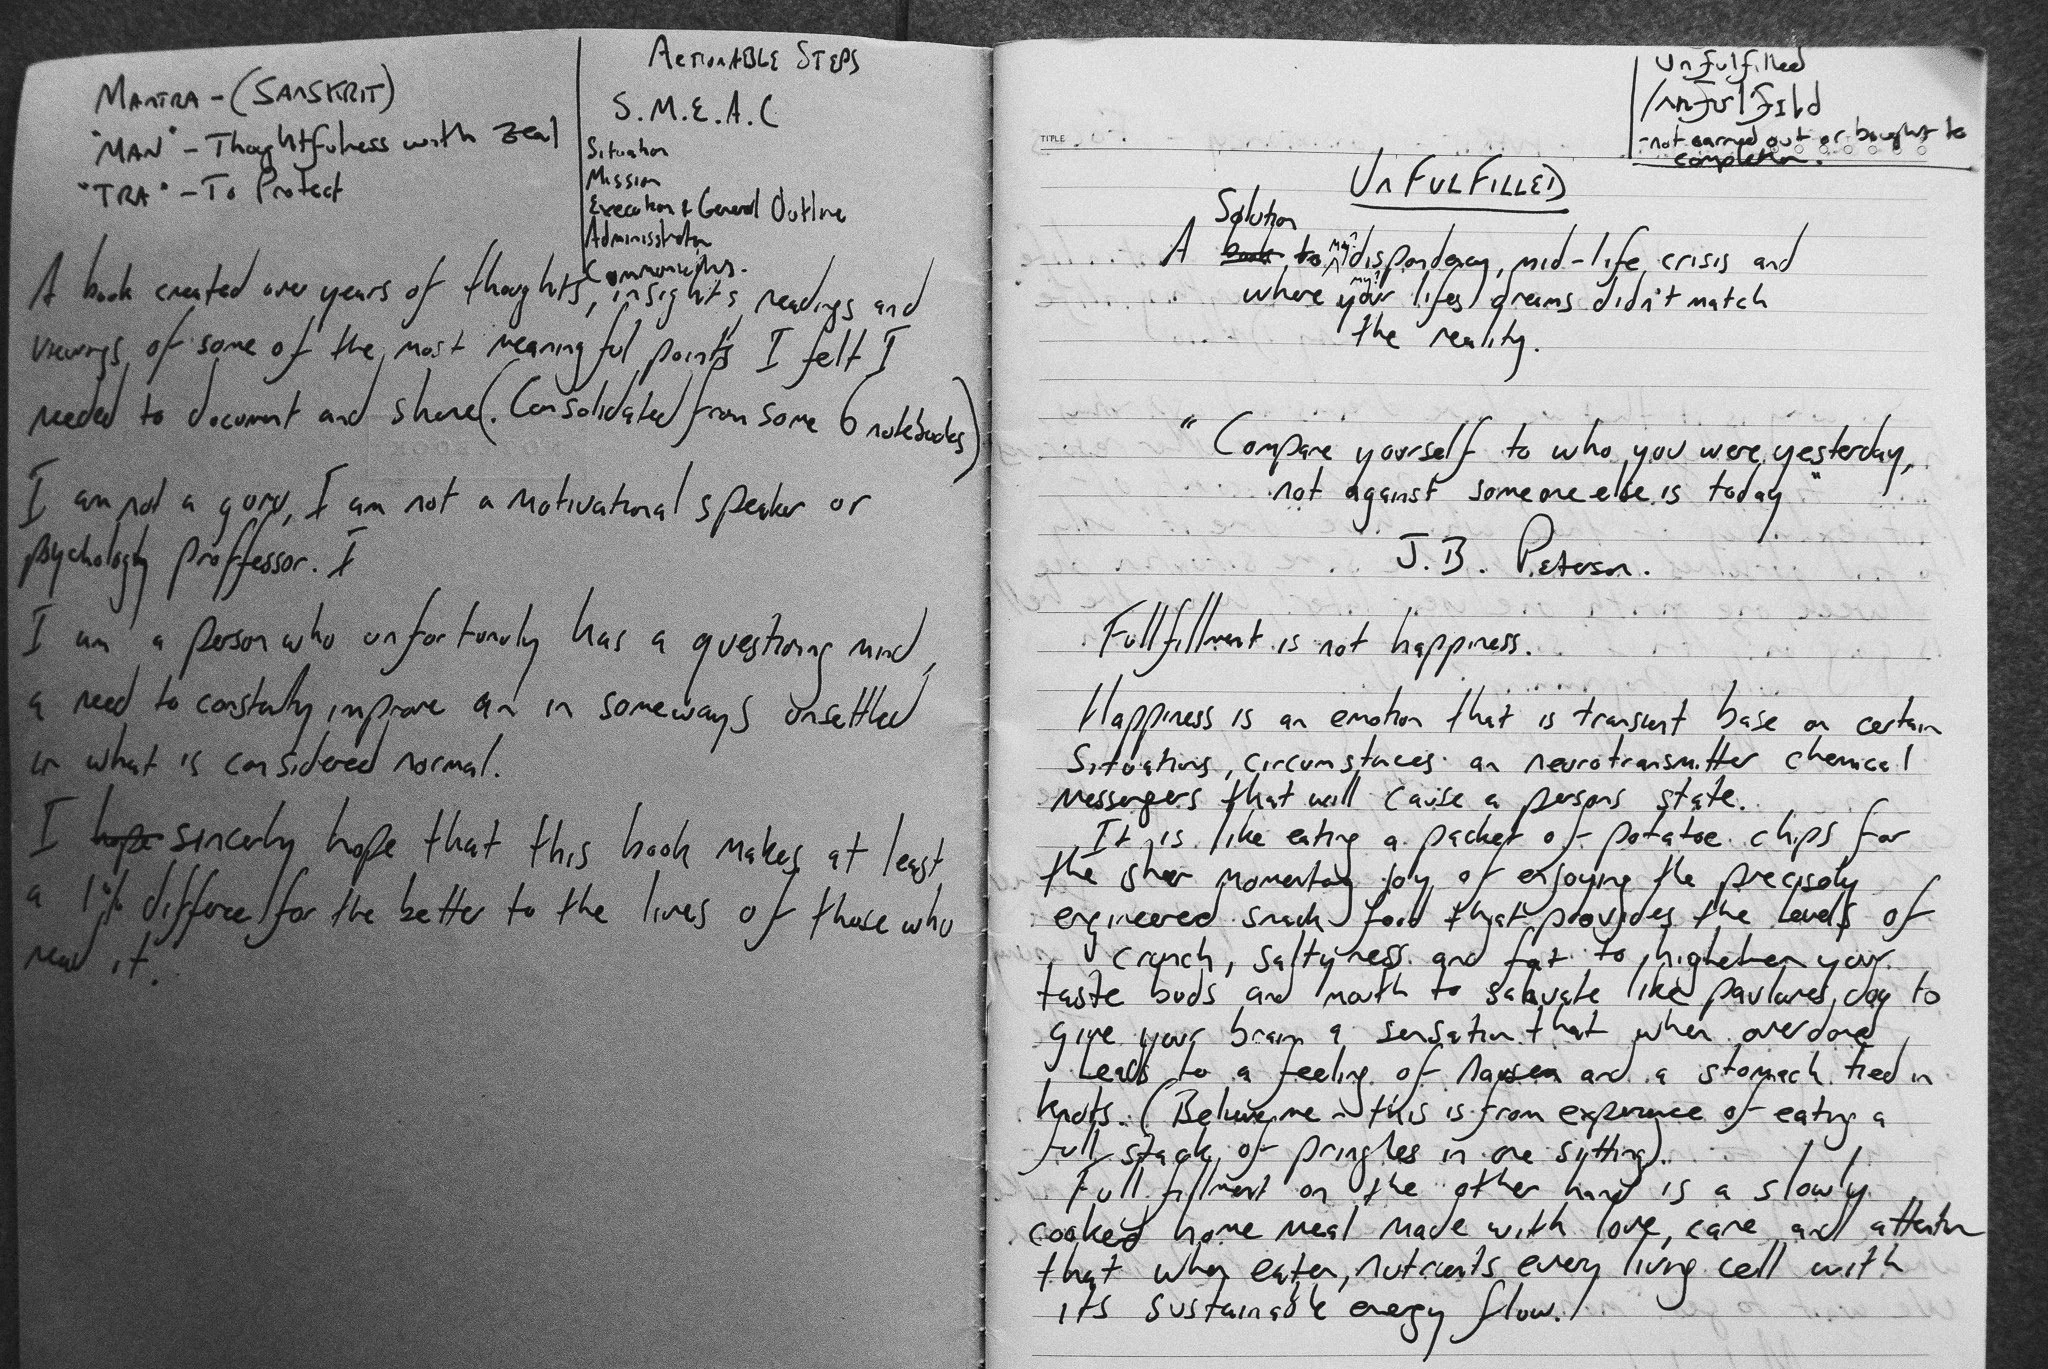 MANTRA - (SANSKRIT)
"MAN" - Thoughtfulness with zeal
"TRA" - To Protect
ACTIONABLE STEPS
S.M.E.A.C
Situation
Mission
Execution & General Outline
Administration
A book created over years of thoughts, insights, readings and
viewings of some of the most meaningful points I felt I
needed to document and share. (Consolidated from some 6 notebooks)
I am not a guru, I am not a motivational speaker or
psychology proffessor. I
I am a person who unfortunely has a questioning mind,
a need to constantly improve an in someways unsettled
in what is considered normal.
I hope sincerly hope that this book makes at least
a 1% differnce for the better to the lives of those who
read it.
Unfulfilled
-not carried out or bought to
completion.
TITLE
UNFULFILLED
Solution
A book to my? dispondency, mid-life crisis and
my?
where your lifes dreams didn't match
the reality.
"Compare yourself to who you were yesterday,
not against someone else is today"
J.B. Peterson.
Fullfillment is not happiness.
Happiness is an emotion that is transient base on certain
situations, circumstances an neurotransmitter chemical
messengers that will cause a persons state.
It is like eating a packet of potatoe chips for
the sheer momentary joy of enjoying the precisely
engineered snack food that provides the levels of
crunch, saltyness and fat to highten your
taste buds and mouth to salivate like pavlovs dog to
give your brain a sensation that when overdone
leads to a feeling of nausea and a stomach tied in
knots. (Believe me - this is from experience of eating a
full stack of pringles in one sitting).
Full fillment on the other hand is a slowly
cooked home meal made with love, care and attention
that when eaten, nutrients every living cell with
its sustainable energy flow.